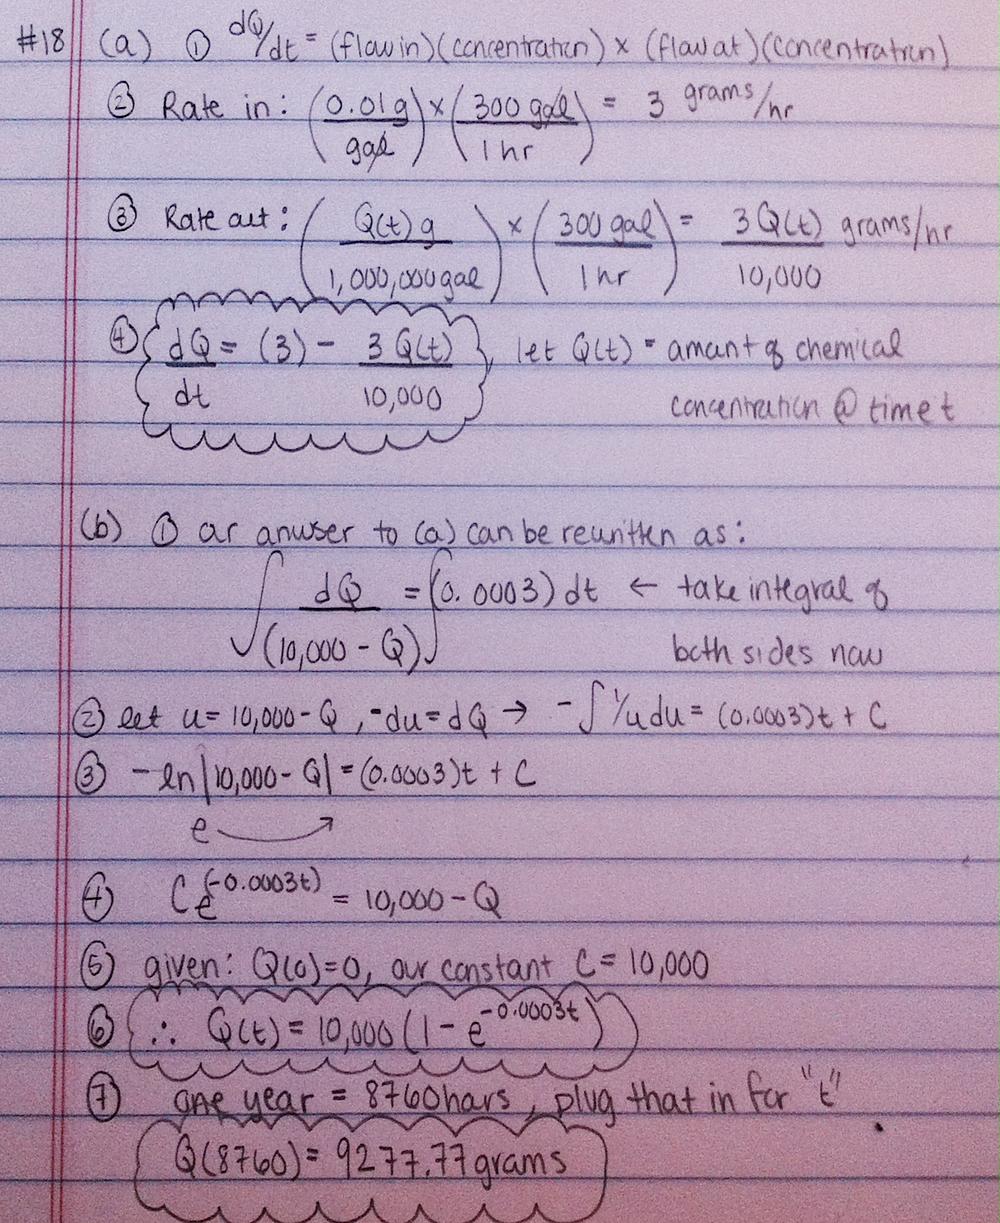 #18 (a) ① dQ/dt = (flow in)(concentration) × (flow out)(concentration)
② Rate in: (0.01g/gal) × (300 gal/1 hr) = 3 grams/hr
③ Rate out: (Q(t) g/1,000,000 gal) × (300 gal/1 hr) = 3 Q(t)/10,000 grams/hr
④ dQ/dt = (3) - 3 Q(t)/10,000, let Q(t) = amount of chemical
concentration @ time t
(b) ① our anwser to (a) can be rewritten as:
∫ dQ/(10,000 - Q) = ∫(0.0003) dt ← take integral of
both sides now
② let u = 10,000 - Q, -du = dQ → -∫ 1/u du = (0.0003)t + C
③ -ln|10,000 - Q| = (0.0003)t + C
e
④ Ce^(-0.0003t) = 10,000 - Q
⑤ given: Q(0)=0, our constant C = 10,000
⑥ ∴ Q(t) = 10,000 (1 - e^-0.0003t)
⑦ one year = 8760 hours, plug that in for "t"
Q(8760) = 9277.77 grams